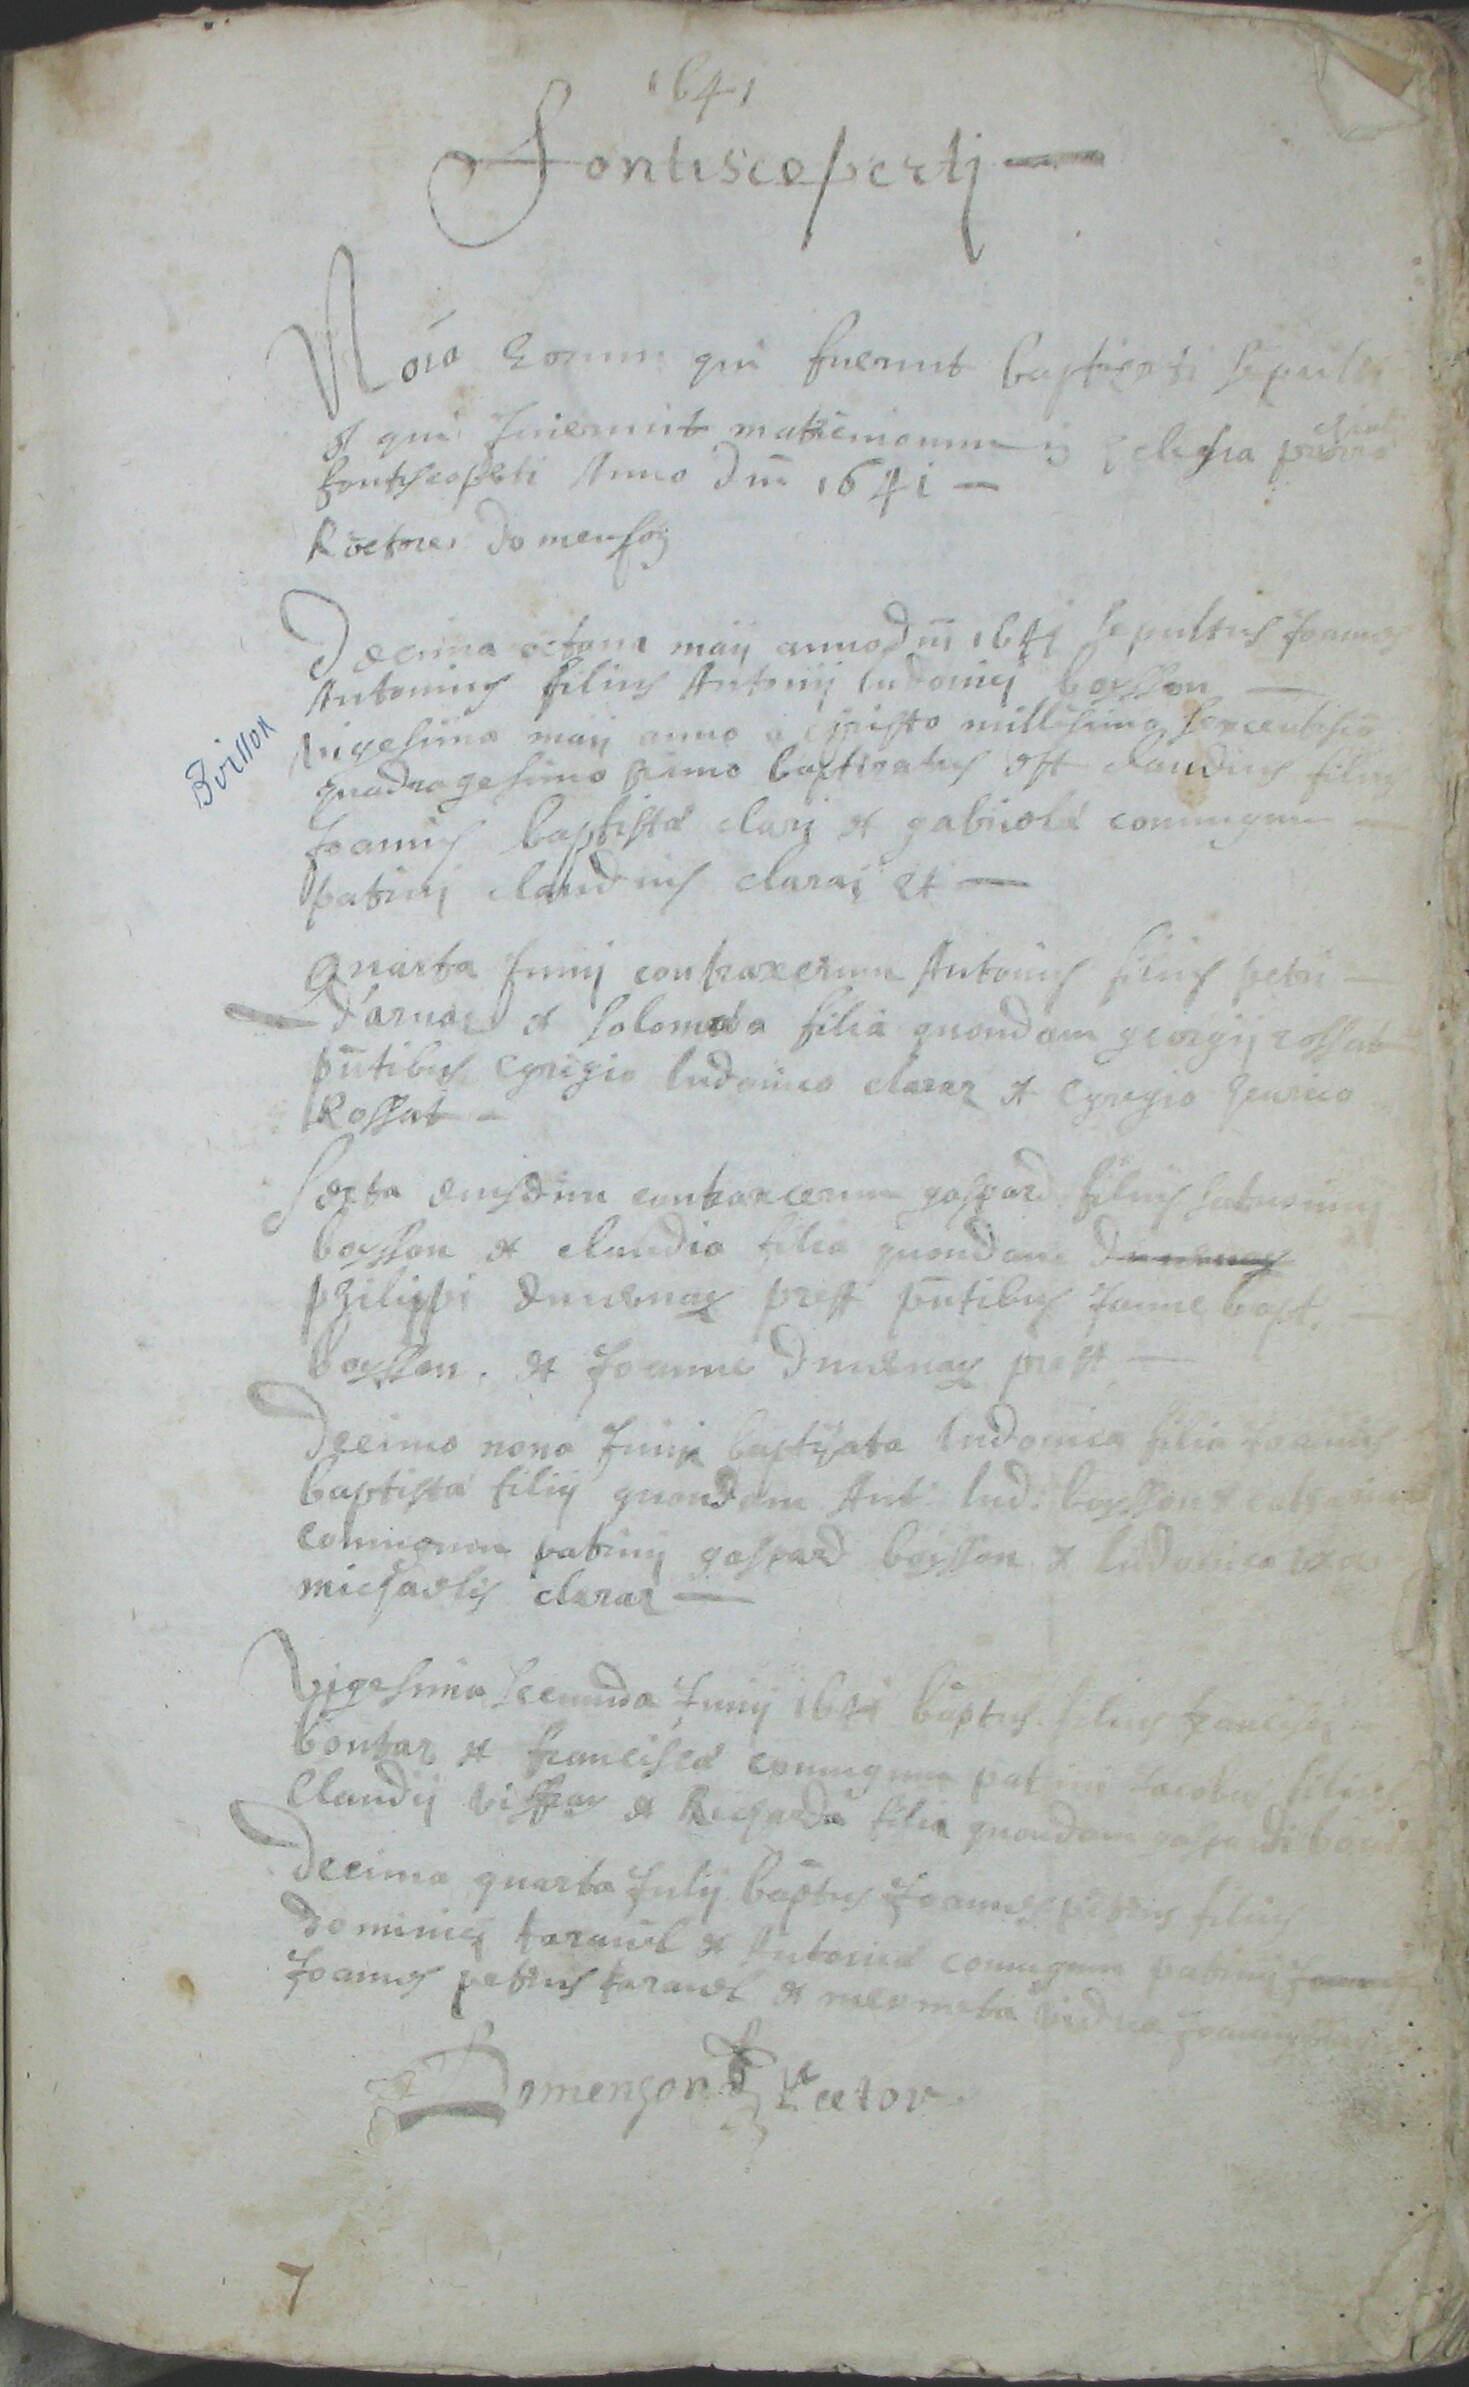 1641
Fontiscoperti
Noīa Eorum qui fuerunt baptizati sepulti
et qui Inierunt matrimonium Eclesia
fontiscopti Anno Dni 1641
Rectore Domensoz
Decima octava maij anno Dni 1641 sepultus Joannes
Antonius filius Antonij ludovici boysson
Boisson
Vigesima maij anno a christo millesimo sexcentesimo
quadragesimo primo baptizatus est claudius filius
Joannis baptistæ clary et gabrielæ coniugum
patrini claudius claraz et
Quarta Junij contraxerunt Antonius filius petri
darnas et Solomea filia quondam georgij rossat
pntibus Egregio ludovico claraz et Egregio henrico
Rossat
Sexta eiusdem contraxerunt gaspard filius
boysson et claudia filia quondam
philippi duvernay prest pntibus Joanne bapt.
boysson. et Joanne Duvernay prest
Decimo nona Junij baptizata ludovica filia Joannis
baptistæ filij quondam Ant. lud. boysson &
coniugum patrini gaspard boysson & ludovica
michaelis claraz
Vigesima secunda Junij 1641 baptus filius francisci
boutaz et franciscæ coniugum patrini Jacobus filius
Claudij et Richarda filia quondam gaspardi
Decima quarta Julij baptus Joannes petrus filius
dominici taravel et Antoniæ coniugum patrini Joannes
Joannes petrus taravel et mermeta vidua
Domenson Rector
7